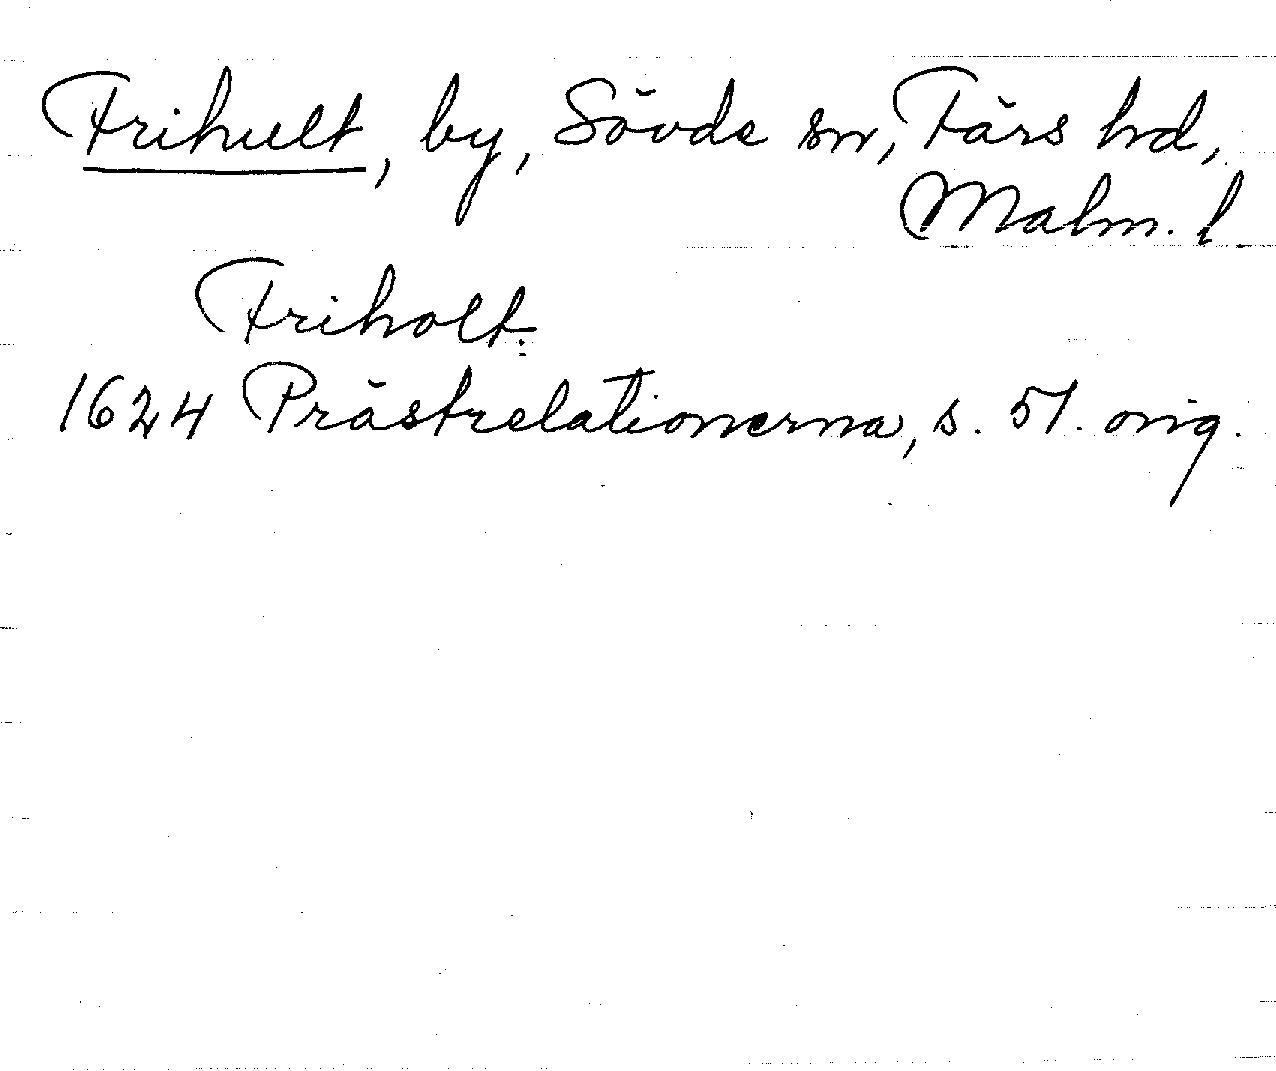 Frihult, by, Sövde sn, Färs hd,
Malm. l
Friholt.
1624 Prästrelationerna, s. 51. orig.